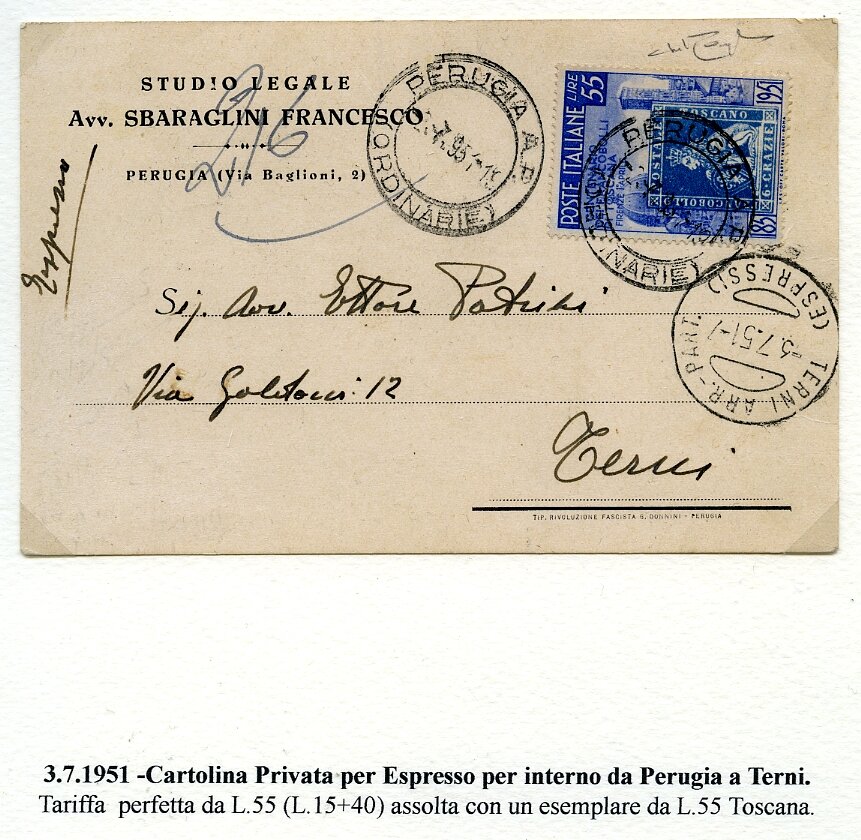 STUDIO LEGALE
Avv. SBARAGLINI FRANCESCO
PERUGIA (Via Baglioni, 2)
216
Espresso
PERUGIA A.P.
(ORDINARIE)
POSTE ITALIANE LIRE 55
1951
TOSCANO
FRANCOBOLLO
POSTALE
6. CRAZIE
PERUGIA A.P.
(ORDINARIE)
TERNI ARR.-PART.
(ESPRESSI)
-3.7.51-7
Sig. Avv. Ettore Patrizi
Via Goletani 12
Terni
TIP. RIVOLUZIONE FASCISTA G. DONNINI - PERUGIA
3.7.1951 -Cartolina Privata per Espresso per interno da Perugia a Terni.
Tariffa perfetta da L.55 (L.15+40) assolta con un esemplare da L.55 Toscana.